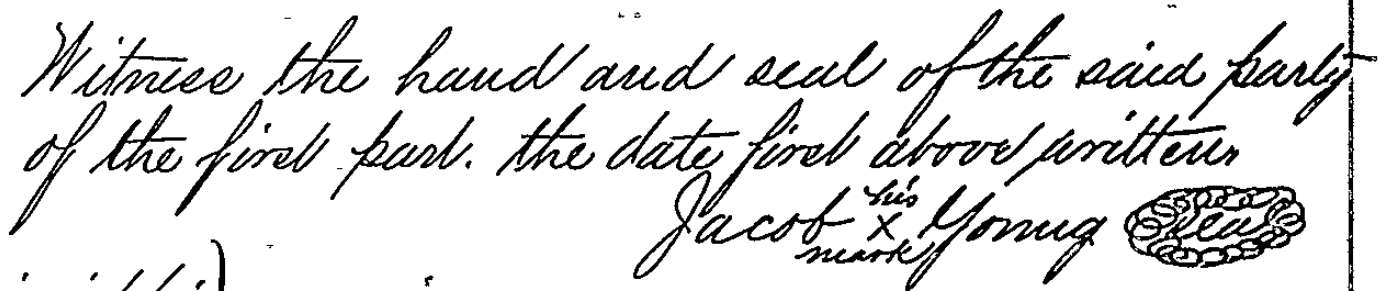 Witness the hand and seal of the said party
of the first part. the date first above written
his
Jacob X Young Seal
mark